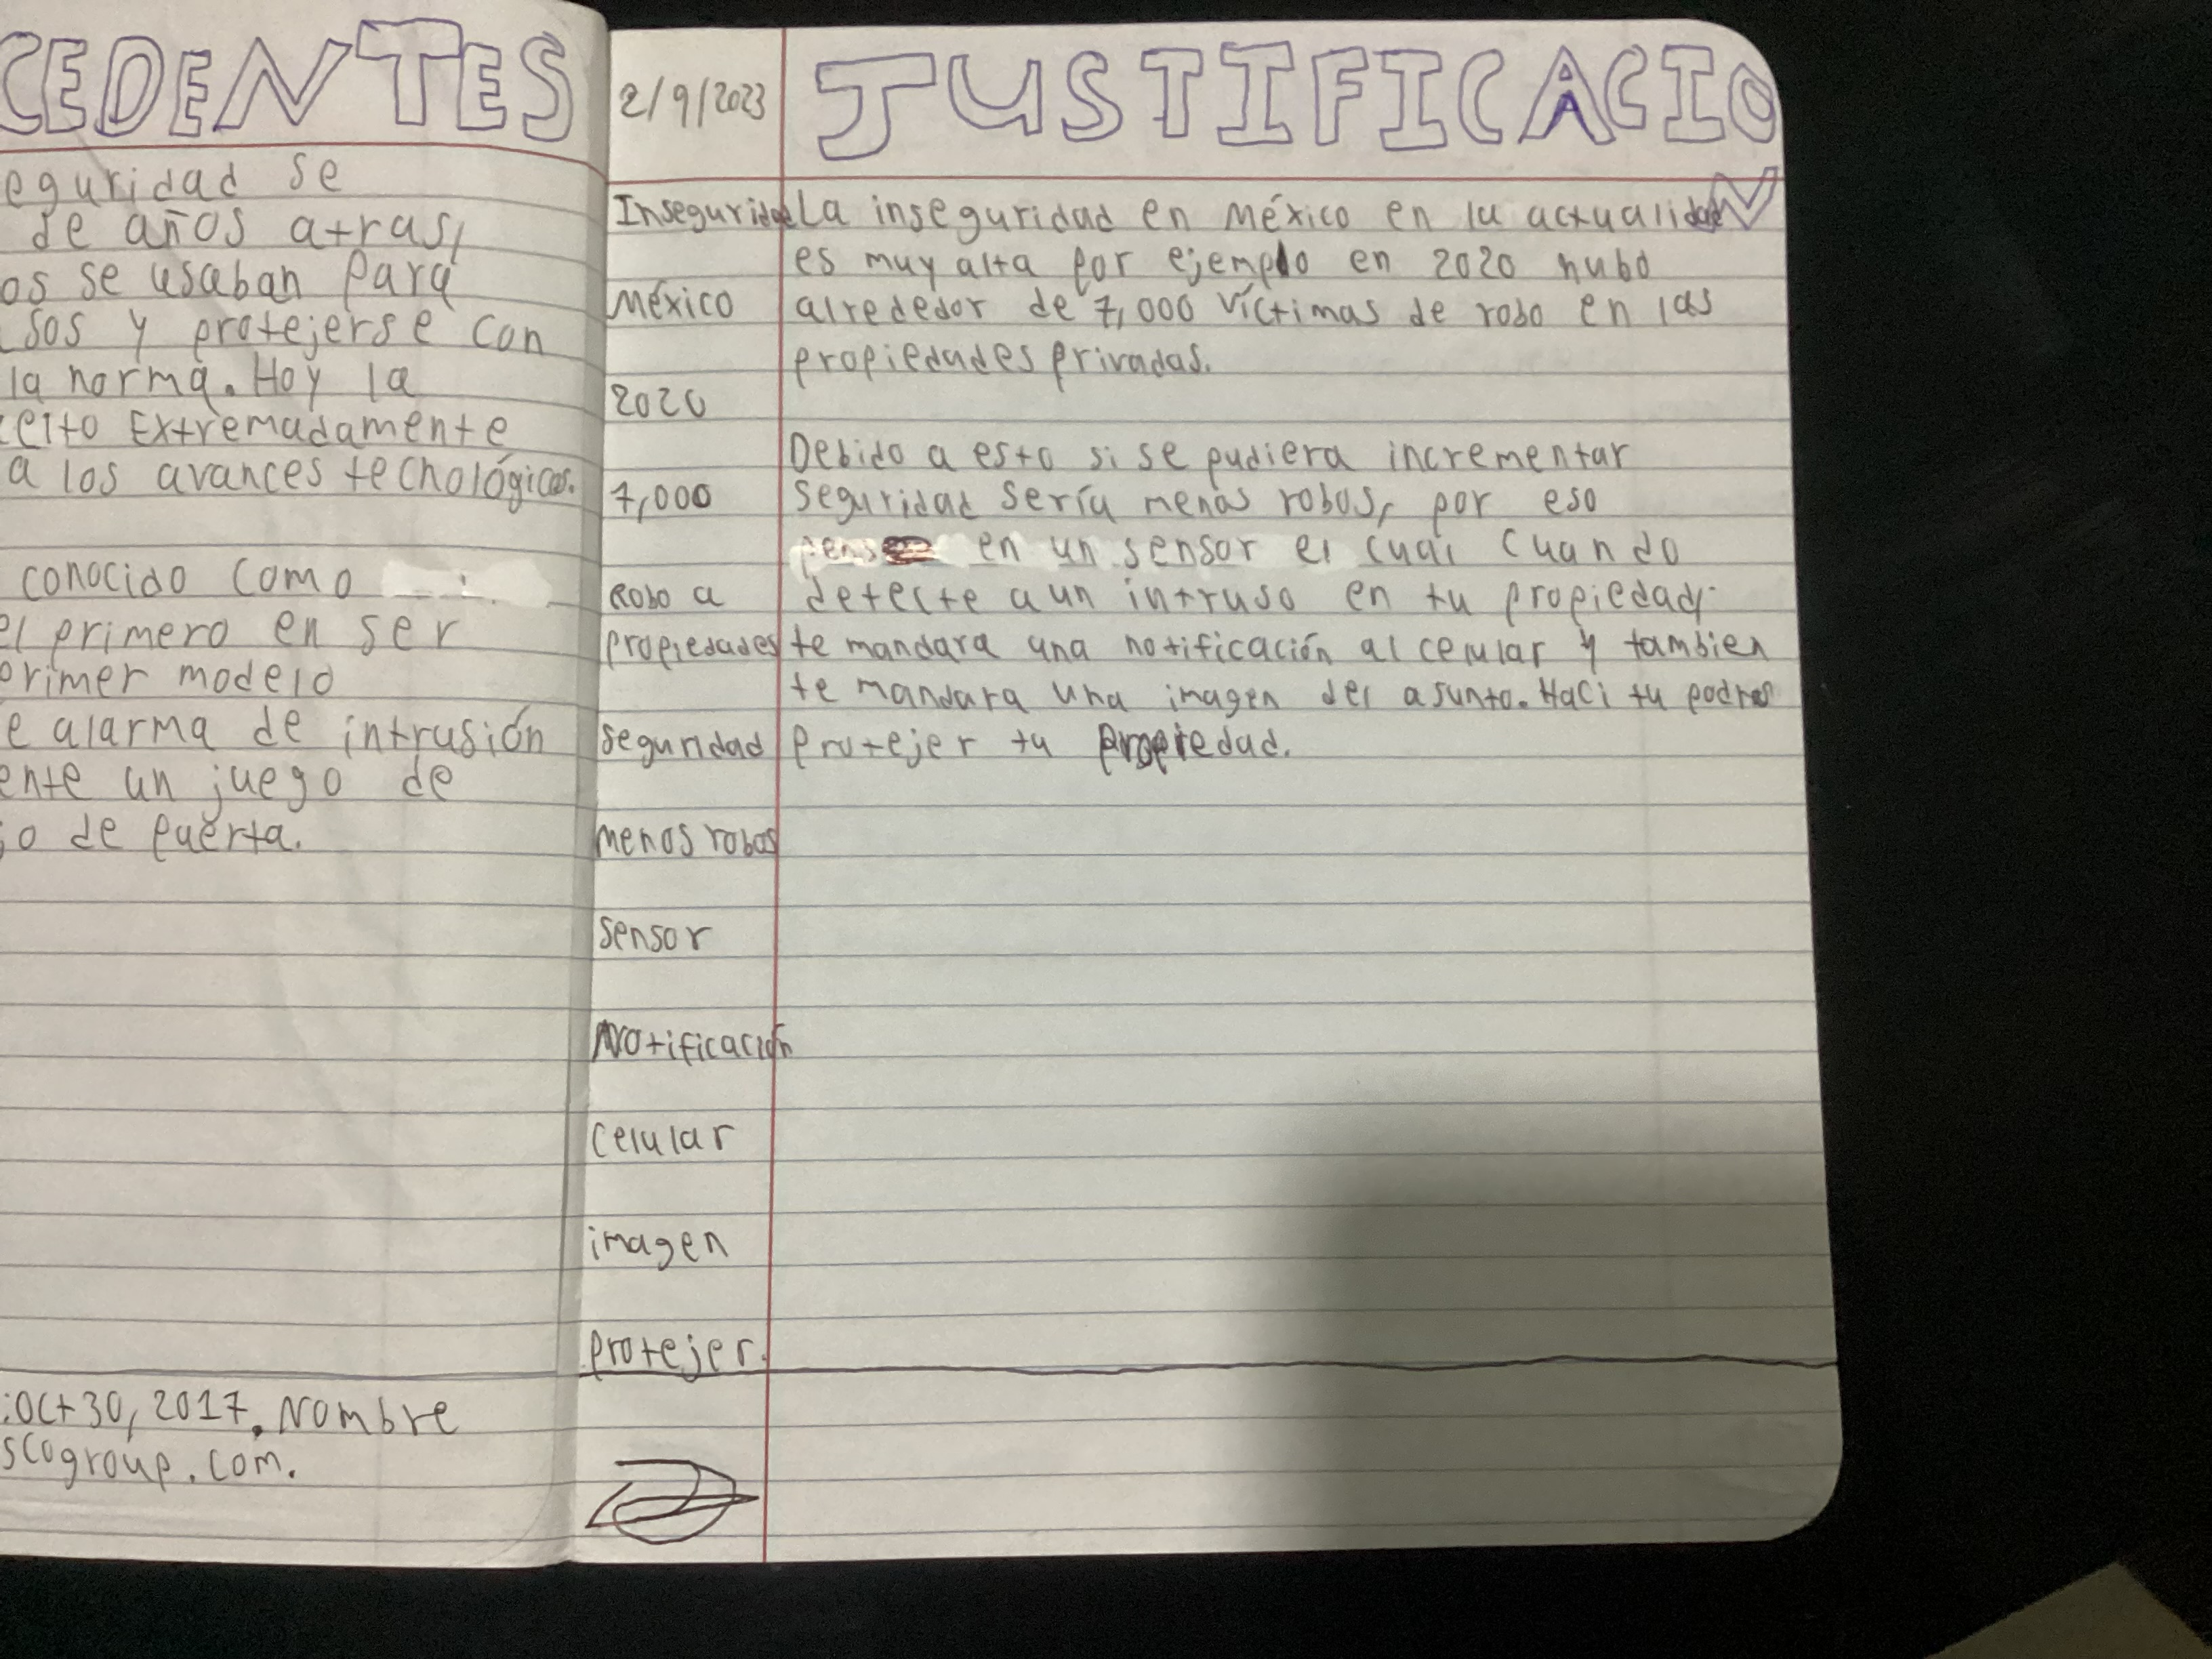 CEDENTES
eguridad se
de años atras,
os se usaban para
sos y protejerse con
la norma. Hoy la
Extremadamente
a los avances tecnológicos.
conocido como
el primero en ser
primer modelo
e alarma de intrusión
ente un juego de
o de puerta.
:Oct 30, 2017. Nombre
scogroup.com.
2/9/2023
JUSTIFICACION
Inseguridad
México
2020
7,000
Robo a
propiedades
seguridad
menos robos
sensor
Notificación
celular
imagen
protejer.
La inseguridad en México en la actualidad
es muy alta por ejemplo en 2020 hubo
alrededor de 7,000 víctimas de robo en las
propiedades privadas.
Debido a esto si se pudiera incrementar
seguridad sería menos robos, por eso
en un sensor el cual cuando
detecte a un intruso en tu propiedad,
te mandara una notificación al celular y tambien
te mandara una imagen del asunto. Haci tu podras
protejer tu propiedad.